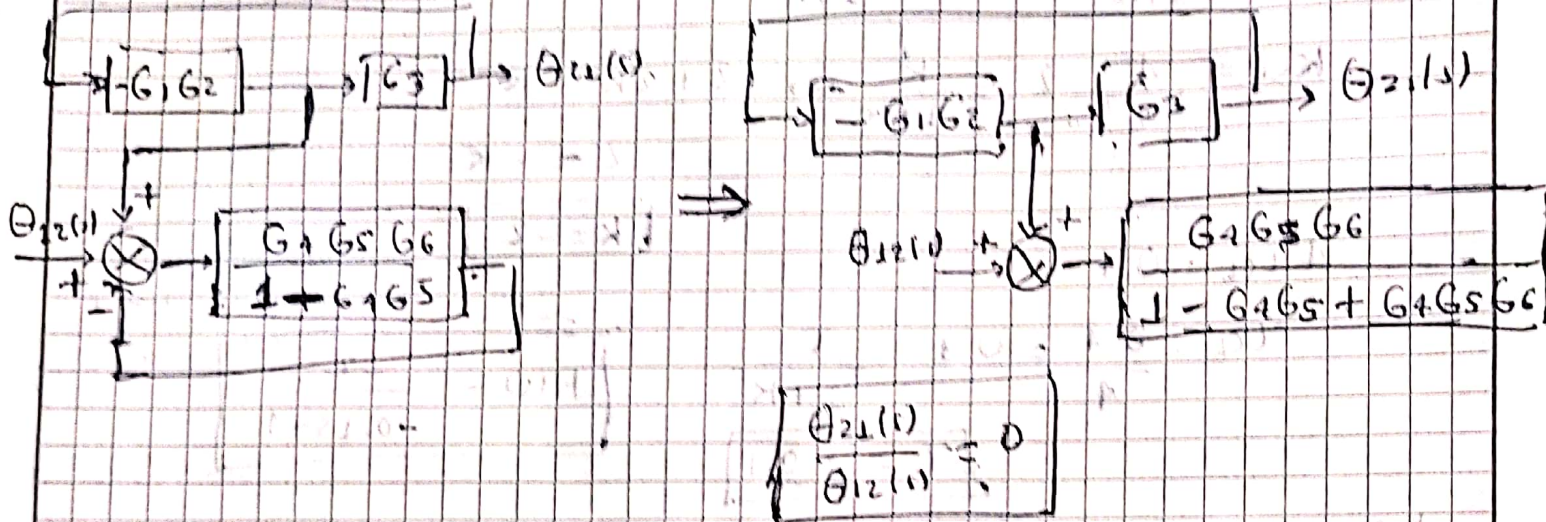 -G1G2 G3 θ21(s)
θ12(s) + + - G4 G5 G6
1 - G4G5
⇒
- G1.G2 G3 θ21(s)
θ12(s) + + G4 G5 G6
1 - G4G5 + G4.G5 G6
θ21(s)
= 0
θ12(s)